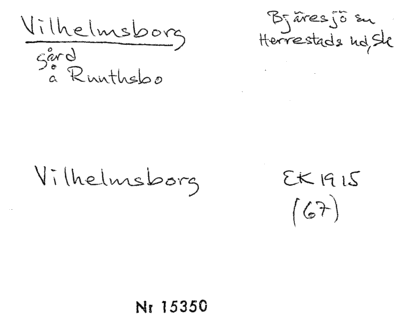 Vilhelmsborg Bjäresjö sn
gård Herrestads hd, Sk
å Ruuthsbo
Vilhelmsborg EK 1915
(67)
Nr 15350